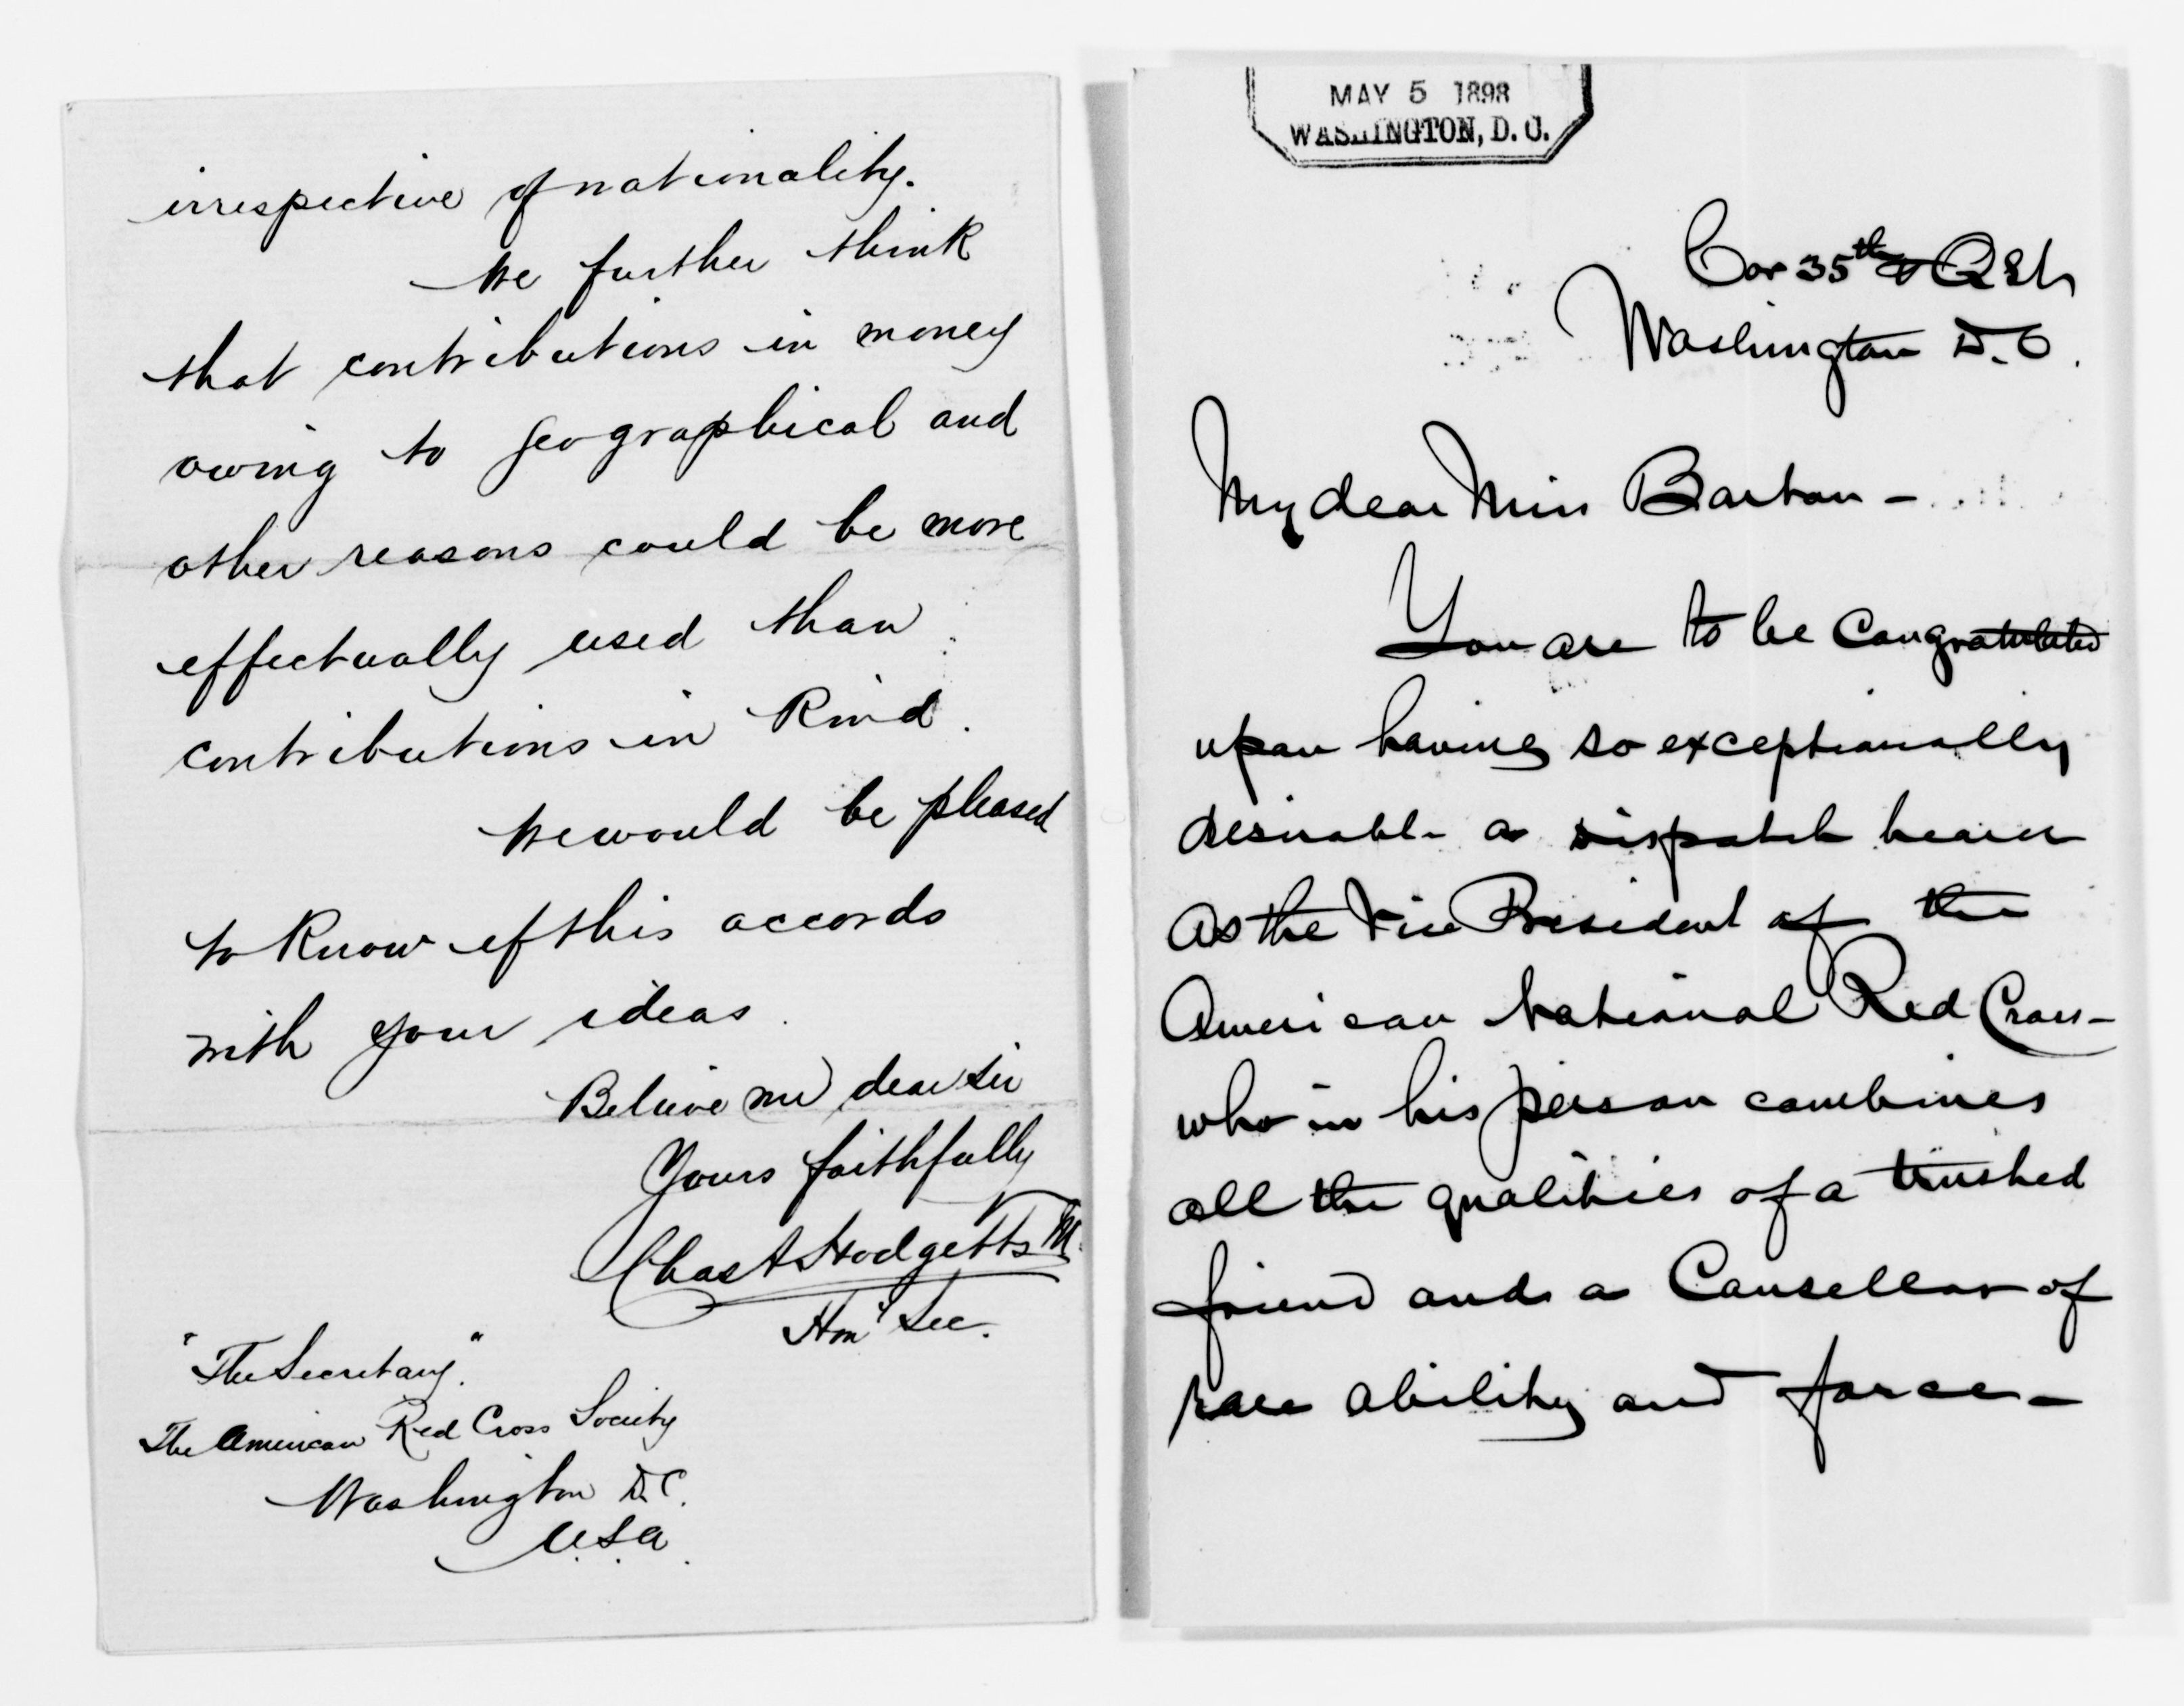 irrespective of nationality.
We further think
that contributions in money
owing to geographical and
other reasons could be more
effectually used than
contributions in kind.
We would be pleased
to know if this accords
with your ideas.
Believe me dear Sir
Yours faithfully
Chas A Hodgetts M.
Hony Sec.
"The Secretary".
The American Red Cross Society
Washington D.C.
U.S.A.
MAY 5 1898
WASHINGTON, D. C.
Cor 35th & Q Sts
Washington D.C.
My dear Miss Barton -
You are to be congratulated
upon having so exceptionally
desirable a dispatch bearer
as the Vice President of the
American National Red Cross -
who in his person combines
all the qualities of a trusted
friend and a Counsellor of
rare ability and force -